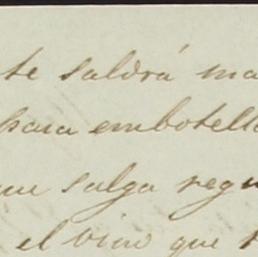 te saldrá ma
para embotella
que salga regu
el vino que